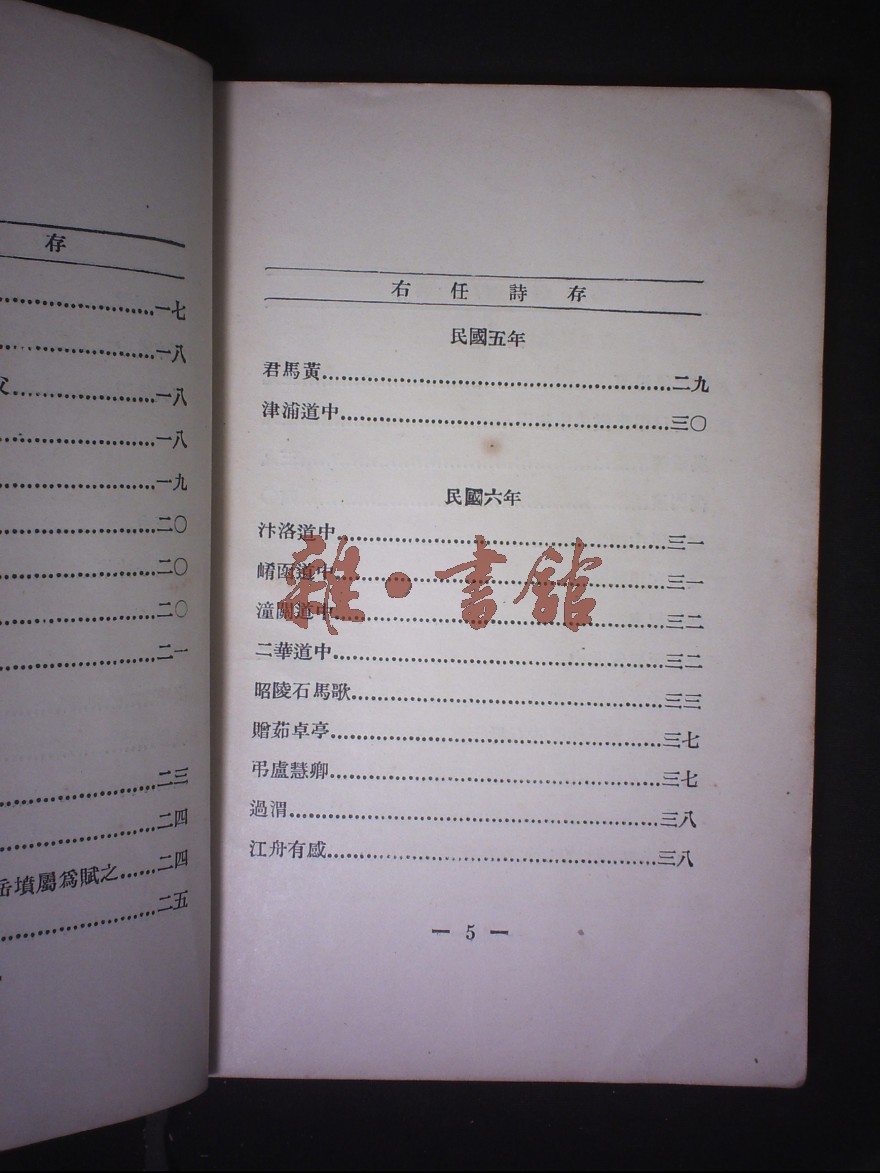 存
一七
一八
父一八
一八
一九
二〇
二〇
二〇
二一
二三
二四
岳墳屬爲賦之……二四
二五
右任詩存
民國五年
君馬黃……二九
津浦道中……三〇
民國六年
汴洛道中……三一
崤函道中……三一
潼關道中……三二
二華道中……三二
昭陵石馬歌……三三
贈茹卓亭……三七
弔盧慧卿……三七
過渭……三八
江舟有感……三八
— 5 —
雜·書館